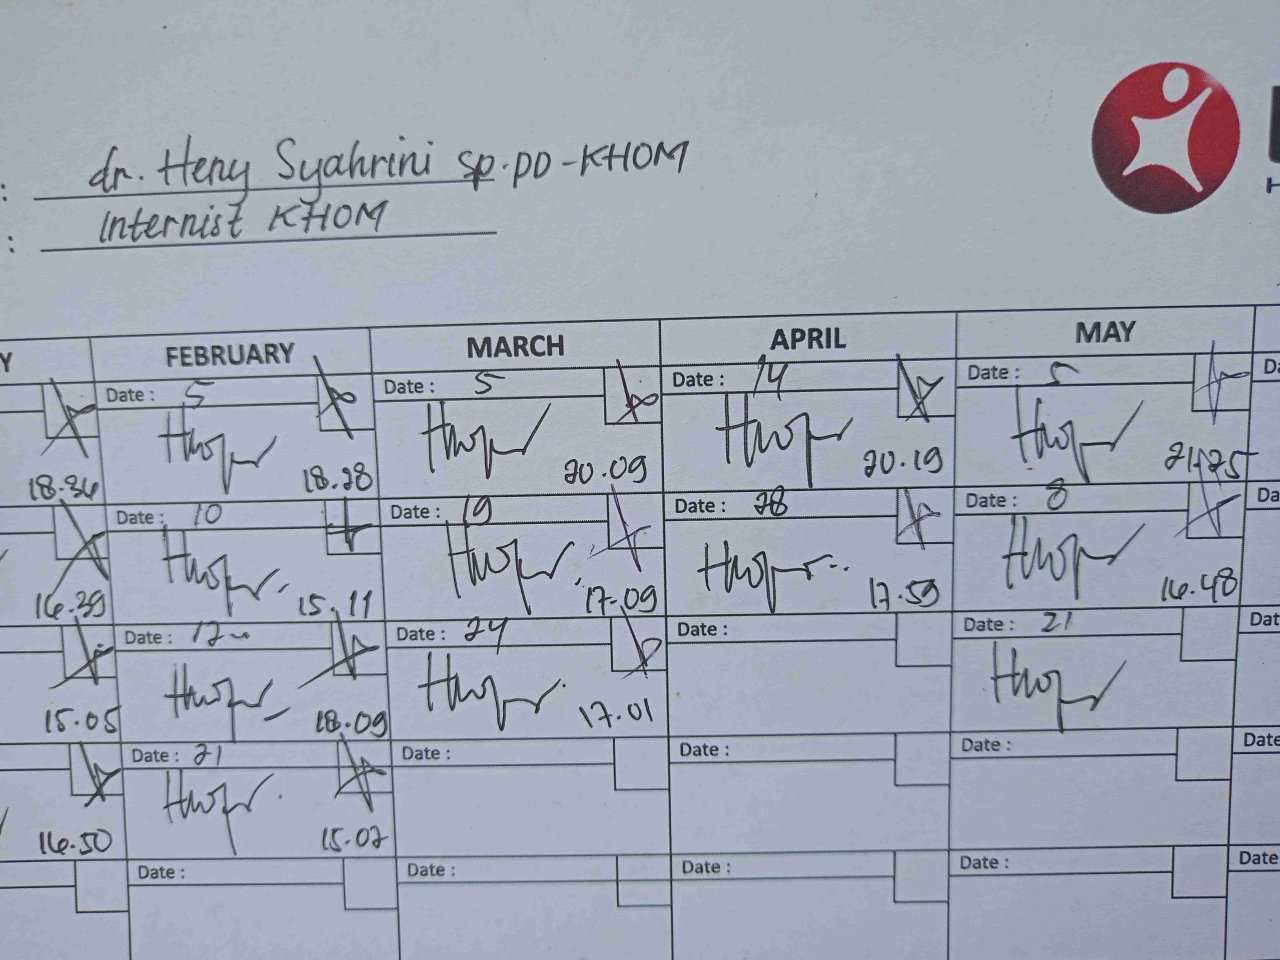 : dr. Heny Syahrini Sp.PD-KHOM
: Internist KHOM
Y FEBRUARY MARCH APRIL MAY
Date : 5 Date : 5 Date : 14 Date : 5
18.34 18.28 20.09 20.19 21.25
Date : 10 Date : 19 Date : 28 Date : 8
16.39 15.11 17.09 17.59 16.48
Date : 12 Date : 24 Date : Date : 21
15.05 18.09 17.01
Date : 21 Date : Date : Date : Date
16.50 15.07
Date : Date : Date : Date : Date